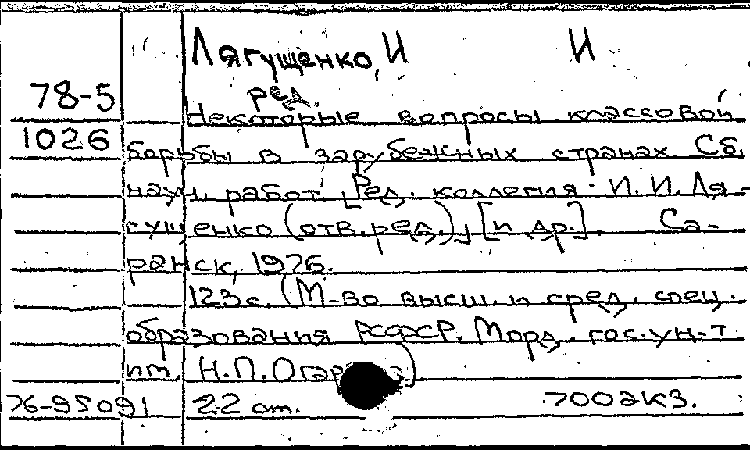 Лягушенко, И И
ред.
78-5
Некоторые вопросы классовой
1026
борьбы в зарубежных странах Сб.
науч. работ [Ред. коллегия: И. И. Ля-
гушенко (отв. ред.), [и др.]. Са-
ранск, 1976.
123 с. (М-во высш. и сред. спец.
образования РСФСР. Морд. гос. ун-т
им. Н. П. Огар
76-95091 22 cm. 700экз.